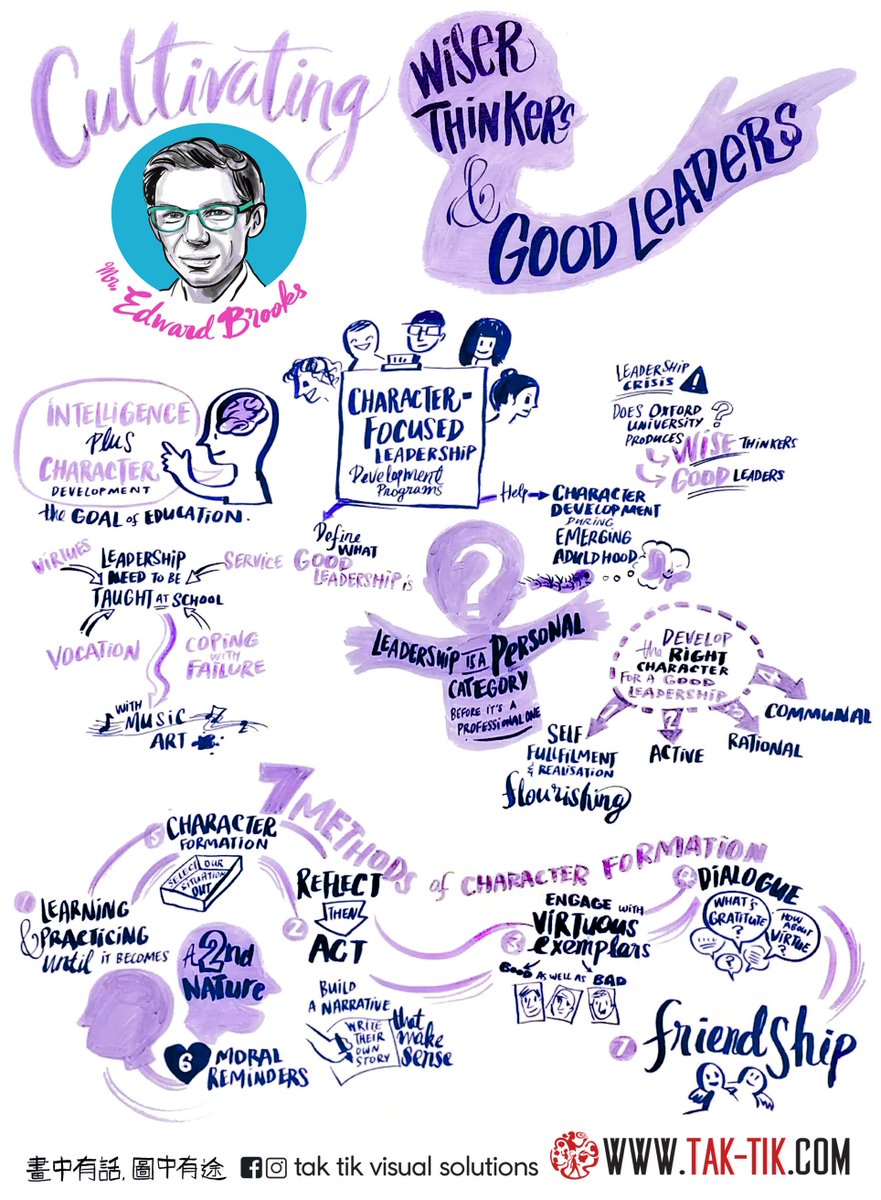 Cultivating
WISER
THINKERS
&
GOOD LEADERS
Mr. Edward Brooks
INTELLIGENCE
plus
CHARACTER
DEVELOPMENT
the GOAL of EDUCATION.
CHARACTER-
FOCUSED
LEADERSHIP
Development
Programs
LEADERSHIP
CRISIS !
DOES OXFORD
UNIVERSITY ?
PRODUCES WISE THINKERS
GOOD LEADERS
Help
CHARACTER
DEVELOPMENT
DURING
EMERGING
ADULDHOOD
Define
WHAT
GOOD
LEADERSHIP is
VIRTUES
LEADERSHIP
NEED TO BE
TAUGHT AT SCHOOL
SERVICE
VOCATION
COPING
WITH
FAILURE
WITH
MUSIC
ART
?
LEADERSHIP IS A PERSONAL
CATEGORY
BEFORE IT'S A
PROFESSIONAL ONE
DEVELOP
the RIGHT
CHARACTER
FOR A GOOD
LEADERSHIP
1
SELF
FULLFILMENT
& REALISATION
flourishing
2
ACTIVE
3
RATIONAL
4
COMMUNAL
7 METHODS of CHARACTER FORMATION
1
LEARNING
& PRACTICING
until IT BECOMES
A 2nd
NATURE
2
REFLECT
THEN
ACT
BUILD
A NARRATIVE
that
make
sense
WRITE
THEIR
OWN
STORY
3
ENGAGE WITH
VIRTUOUS
exemplars
GOOD AS WELL AS BAD
DIALOGUE
WHAT'S
GRATITUDE
?
HOW
ABOUT
VIRTUE
?
5
CHARACTER
FORMATION
SELECT OUR
SITUATION
OUT
6
MORAL
REMINDERS
7
friendship
畫中有話, 圖中有途
tak tik visual solutions
WWW.TAK-TIK.COM